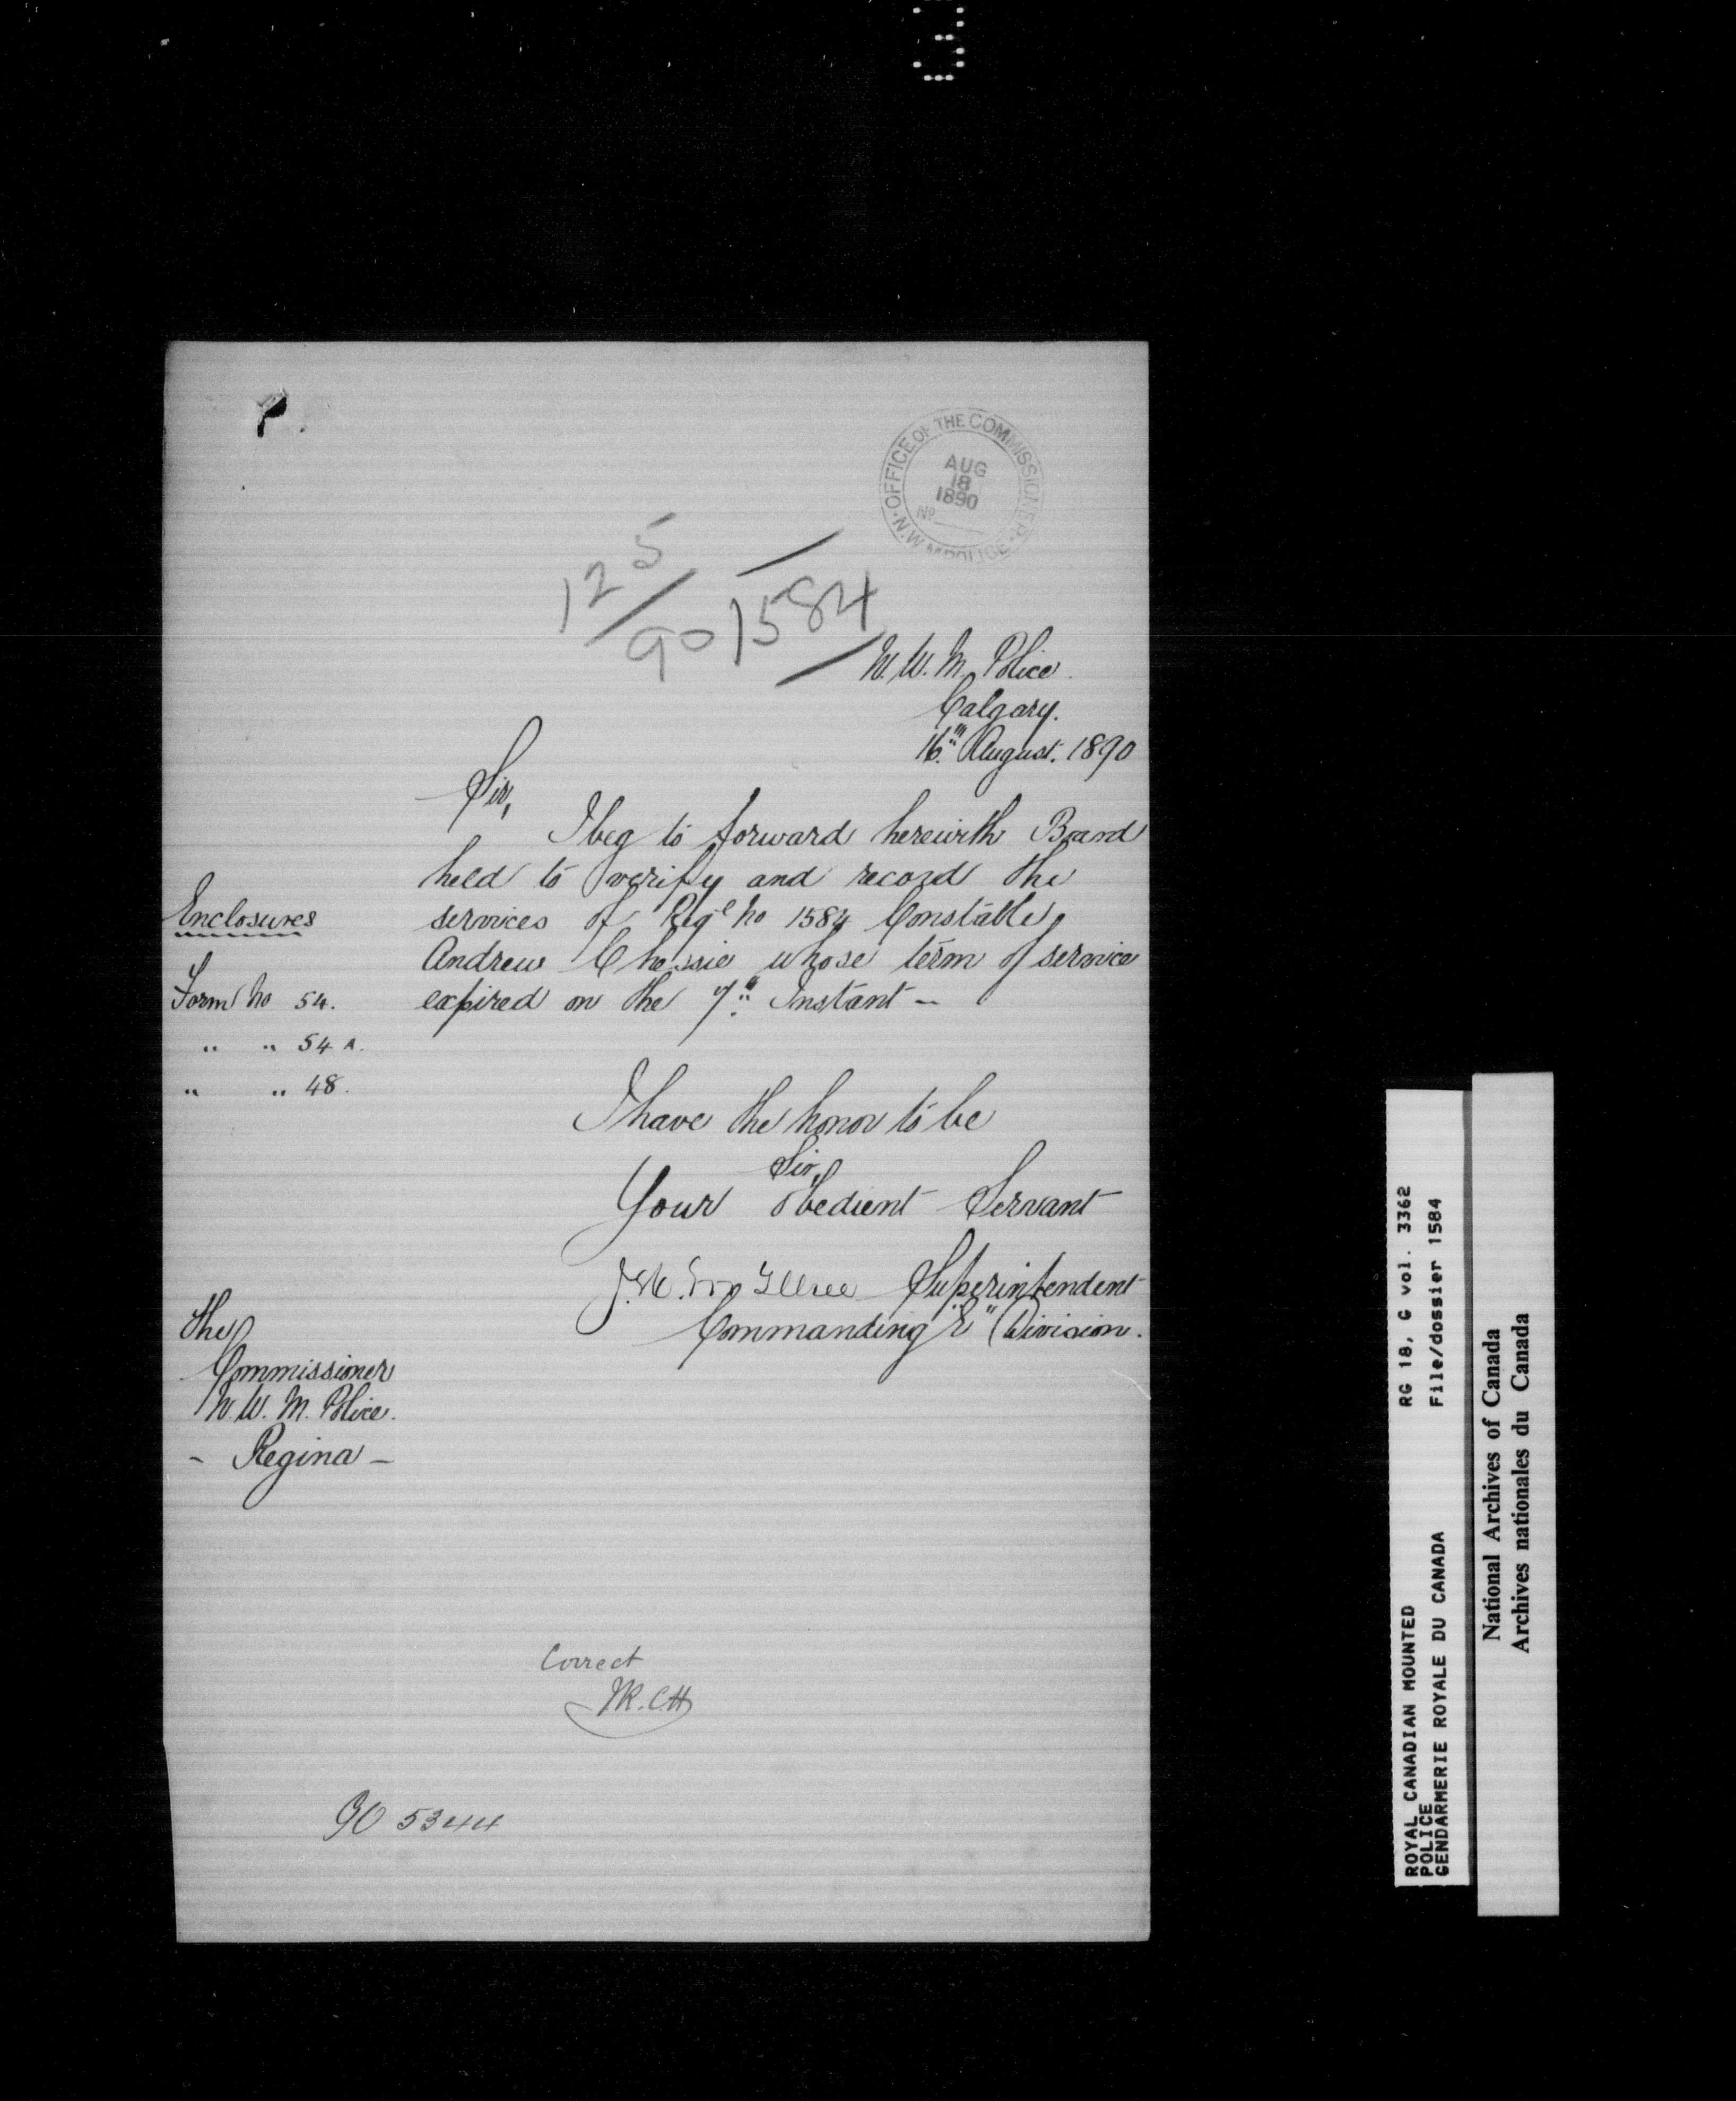 OFFICE OF THE COMMISSIONER · N.W.M. POLICE ·
AUG
18
1890
No
125/90
1584
N. W. M. Police.
Calgary.
16th August. 1890
Sir,
I beg to forward herewith Board
held to verify and record the
services of Regl No 1584 Constable
Andrew Chessie whose term of service
expired on the 7th Instant —
Enclosures
Form No 54.
" " 54 A.
" " 48.
I have the honor to be
Sir,
Your obedient Servant
Superintendent
Commanding "E" Division.
The
Commissioner
N. W. M. Police.
- Regina -
Correct
90 5344
ROYAL CANADIAN MOUNTED
POLICE
GENDARMERIE ROYALE DU CANADA
RG 18, G vol. 3362
File/dossier 1584
National Archives of Canada
Archives nationales du Canada